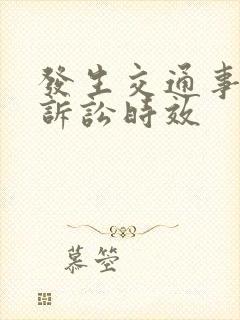 發生交通事
訴訟時效
慕箜